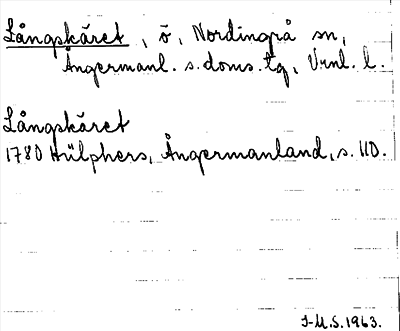 Långskäret, ö, Nordingrå sn,
Ångermanl. s. doms. tg, Vnl. l.
Långskäret
1780 Hülphers, Ångermanland, s. 110.
J-M.S. 1963.